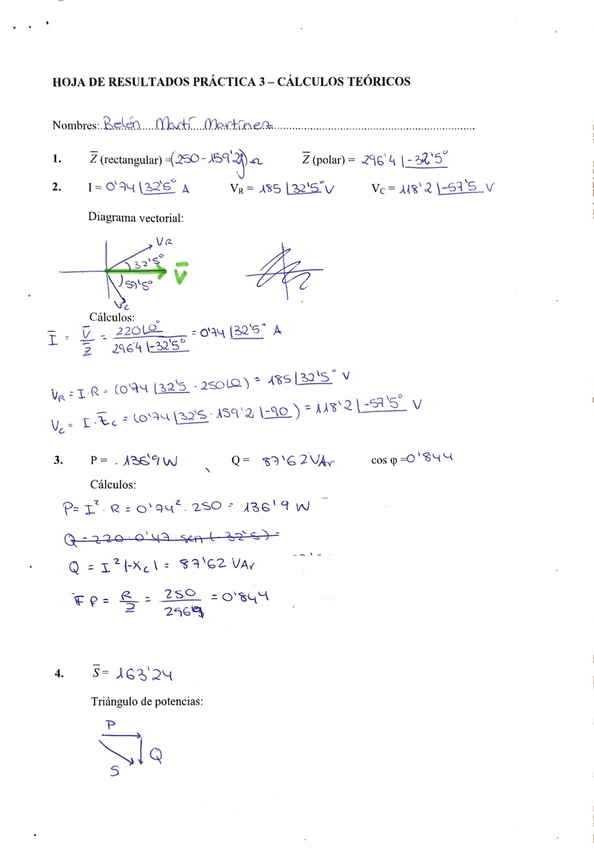 HOJA DE RESULTADOS PRÁCTICA 3 – CÁLCULOS TEÓRICOS
Nombres: Belén Martí Martínez
1. Z̅ (rectangular) = (250 - 159'2j) Ω Z̅ (polar) = 296'4 |-32'5°
2. I = 0'74 |32'5° A V_R = 185 |32'5° V V_C = 118'2 |-57'5 V
Diagrama vectorial:
V_R
32'5°
V̅
59'5°
V_C
Cálculos:
I̅ = V̅/Z̅ = 220|0°/296'4|-32'5° = 0'74 |32'5° A
V_R = I · R = (0'74 |32'5 · 250|0) = 185 |32'5° V
V_C = I · Z̅_C = (0'74 |32'5 · 159'2 |-90) = 118'2 |-57'5° V
3. P = 136'9 W Q = 87'62 VAr cos φ = 0'844
Cálculos:
P = I² · R = 0'74² · 250 = 136'9 W
Q = 220 · 0'47 sen (-32'5) =
Q = I² |-X_C| = 87'62 VAr
FP = R/Z = 250/296'4 = 0'844
4. S̅ = 163'24
Triángulo de potencias:
P
Q
S